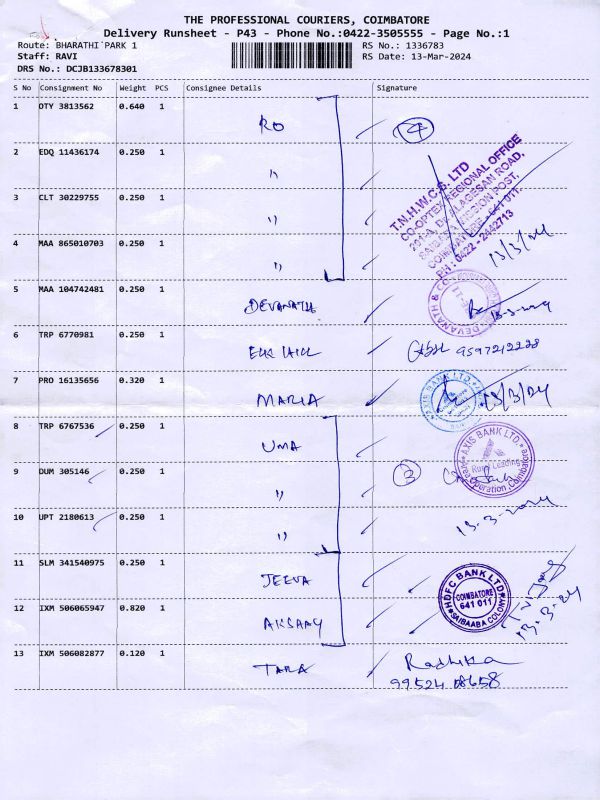 THE PROFESSIONAL COURIERS, COIMBATORE
Delivery Runsheet - P43 - Phone No.:0422-3505555 - Page No.:1
Route: BHARATHI PARK 1 RS No.: 1336783
Staff: RAVI RS Date: 13-Mar-2024
DRS No.: DCJB133678301
S No Consignment No Weight PCS Consignee Details Signature
1 OTY 3813562 0.640 1 RO 4
2 EDQ 11436174 0.250 1 "
3 CLT 30229755 0.250 1 "
4 MAA 865010703 0.250 1 "
T.N.H.W.C.S. LTD
CO-OPTEX REGIONAL OFFICE
PH : 0422 - 2442713
13/3/24
5 MAA 104742481 0.250 1 DEVANATH
DEVANATH & CO
13-3-2024
6 TRP 6770981 0.250 1 9597212228
7 PRO 16135656 0.320 1 MARIA
AXIS BANK LTD.
13/3/24
8 TRP 6767536 0.250 1 UMA
AXIS BANK LTD.
Operation, Coimbatore
9 DUM 305146 0.250 1 " 3
10 UPT 2180613 0.250 1 " 13-3-2024
11 SLM 341540975 0.250 1 JEEVA
HDFC BANK LTD
COIMBATORE
641 011
SAIBAABA COLONY
12 IXM 506065947 0.820 1 AKSAAY 13-3-24
13 IXM 506082877 0.120 1 TARA Radhika
99524 08658